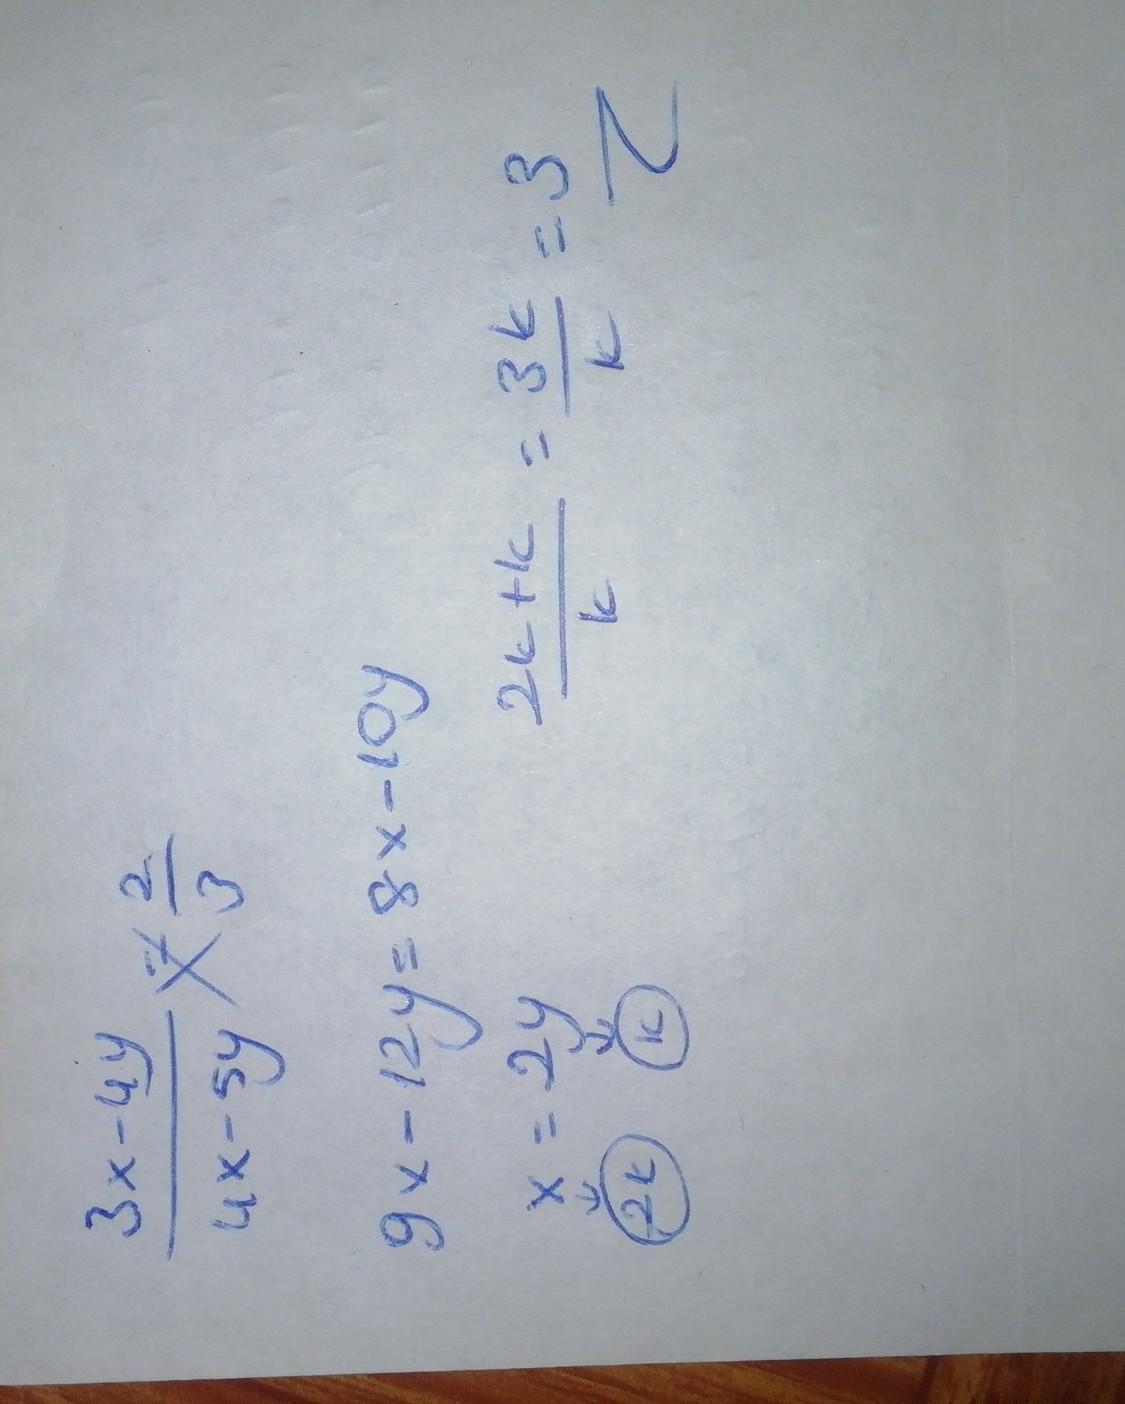 3x-4y / 4x-5y = 2/3
9x-12y=8x-10y
x=2y
2k k
2k+k / k = 3k / k = 3